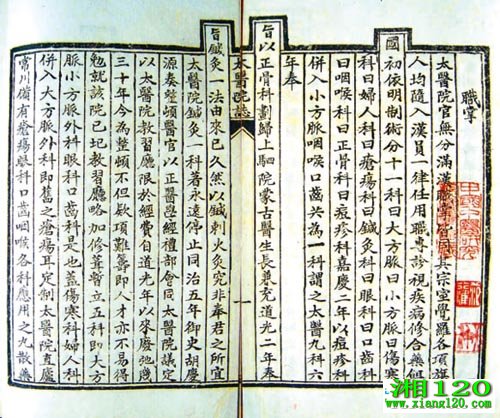 職掌
太醫院官無分滿漢職掌皆同其宗室覺羅各項旗
人均隨入漢員一律任用職專診視疾病修合藥餌
國初依明制術分十一科曰大方脉曰小方脉曰傷寒
科曰婦人科曰瘡瘍科曰鍼灸科曰眼科曰口齒科
曰咽喉科曰正骨科曰痘疹科嘉慶二年以痘疹科
併入小方脉咽喉口齒共為一科謂之太醫九科六
年奉
旨以正骨科劃歸上駟院蒙古醫生長兼充道光二年奉
太醫院志
一
旨鍼灸一法由來已久然以鍼刺火灸究非奉君之所宜
太醫院鍼灸一科著永遠停止同治五年御史胡慶
源奏整頓醫官以正醫學經禮部會同太醫院議定
以太醫院教習廳限於經費自道光年以來廢弛幾
三十年今為整頓不但欵項難籌即人才亦不易得
勉就該院已圮教習廳略加修葺暫立五科即大方
脉小方脉外科眼科口齒科是也蓋傷寒科婦人科
併入大方脉外科即舊之瘡瘍耳定制太醫院直廬
常川備有瘡瘍眼科口齒咽喉各科應用之丸散藥
湘120
www.xiang120.com